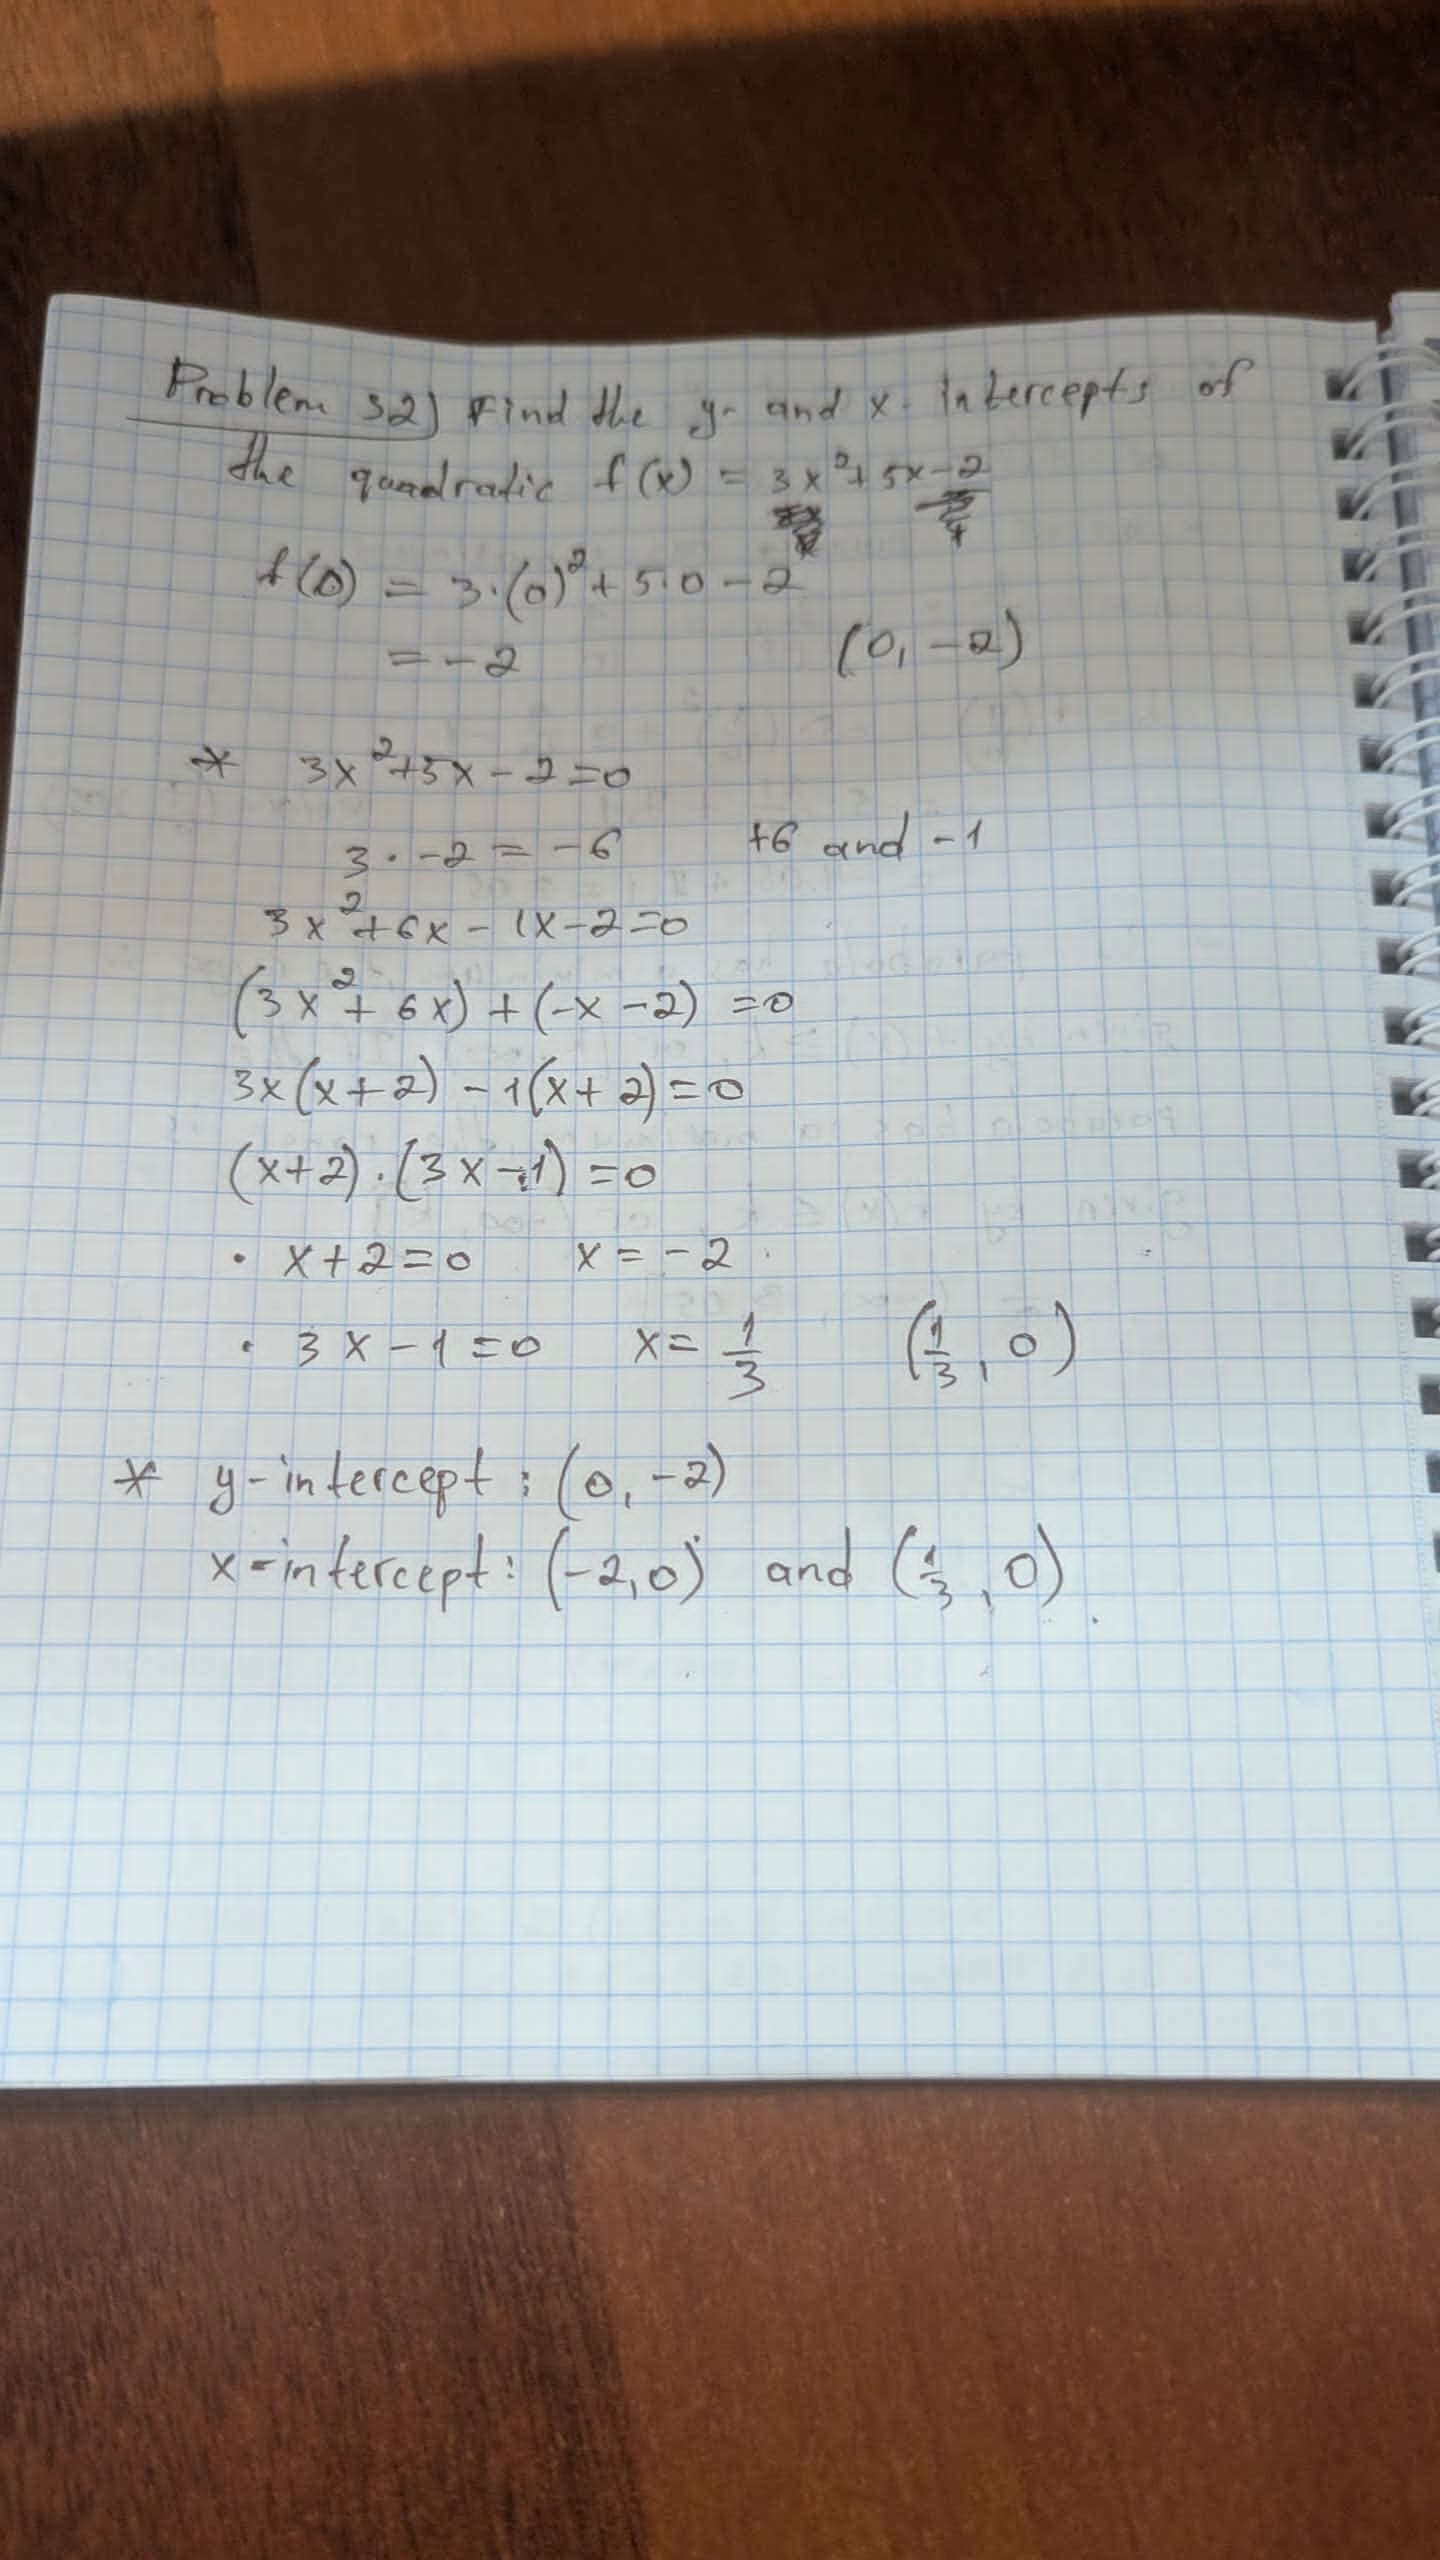 Problem 32) Find the y- and x- intercepts of
the quadratic f(x) = 3x²+5x-2
f(0) = 3·(0)²+5·0-2
= -2 (0, -2)
* 3x²+5x-2=0
3·-2=-6 +6 and -1
3x²+6x-1x-2=0
(3x²+6x)+(-x-2)=0
3x(x+2)-1(x+2)=0
(x+2)·(3x-1)=0
· x+2=0 x=-2
· 3x-1=0 x=1/3 (1/3, 0)
* y-intercept: (0,-2)
x-intercept: (-2,0) and (1/3, 0).